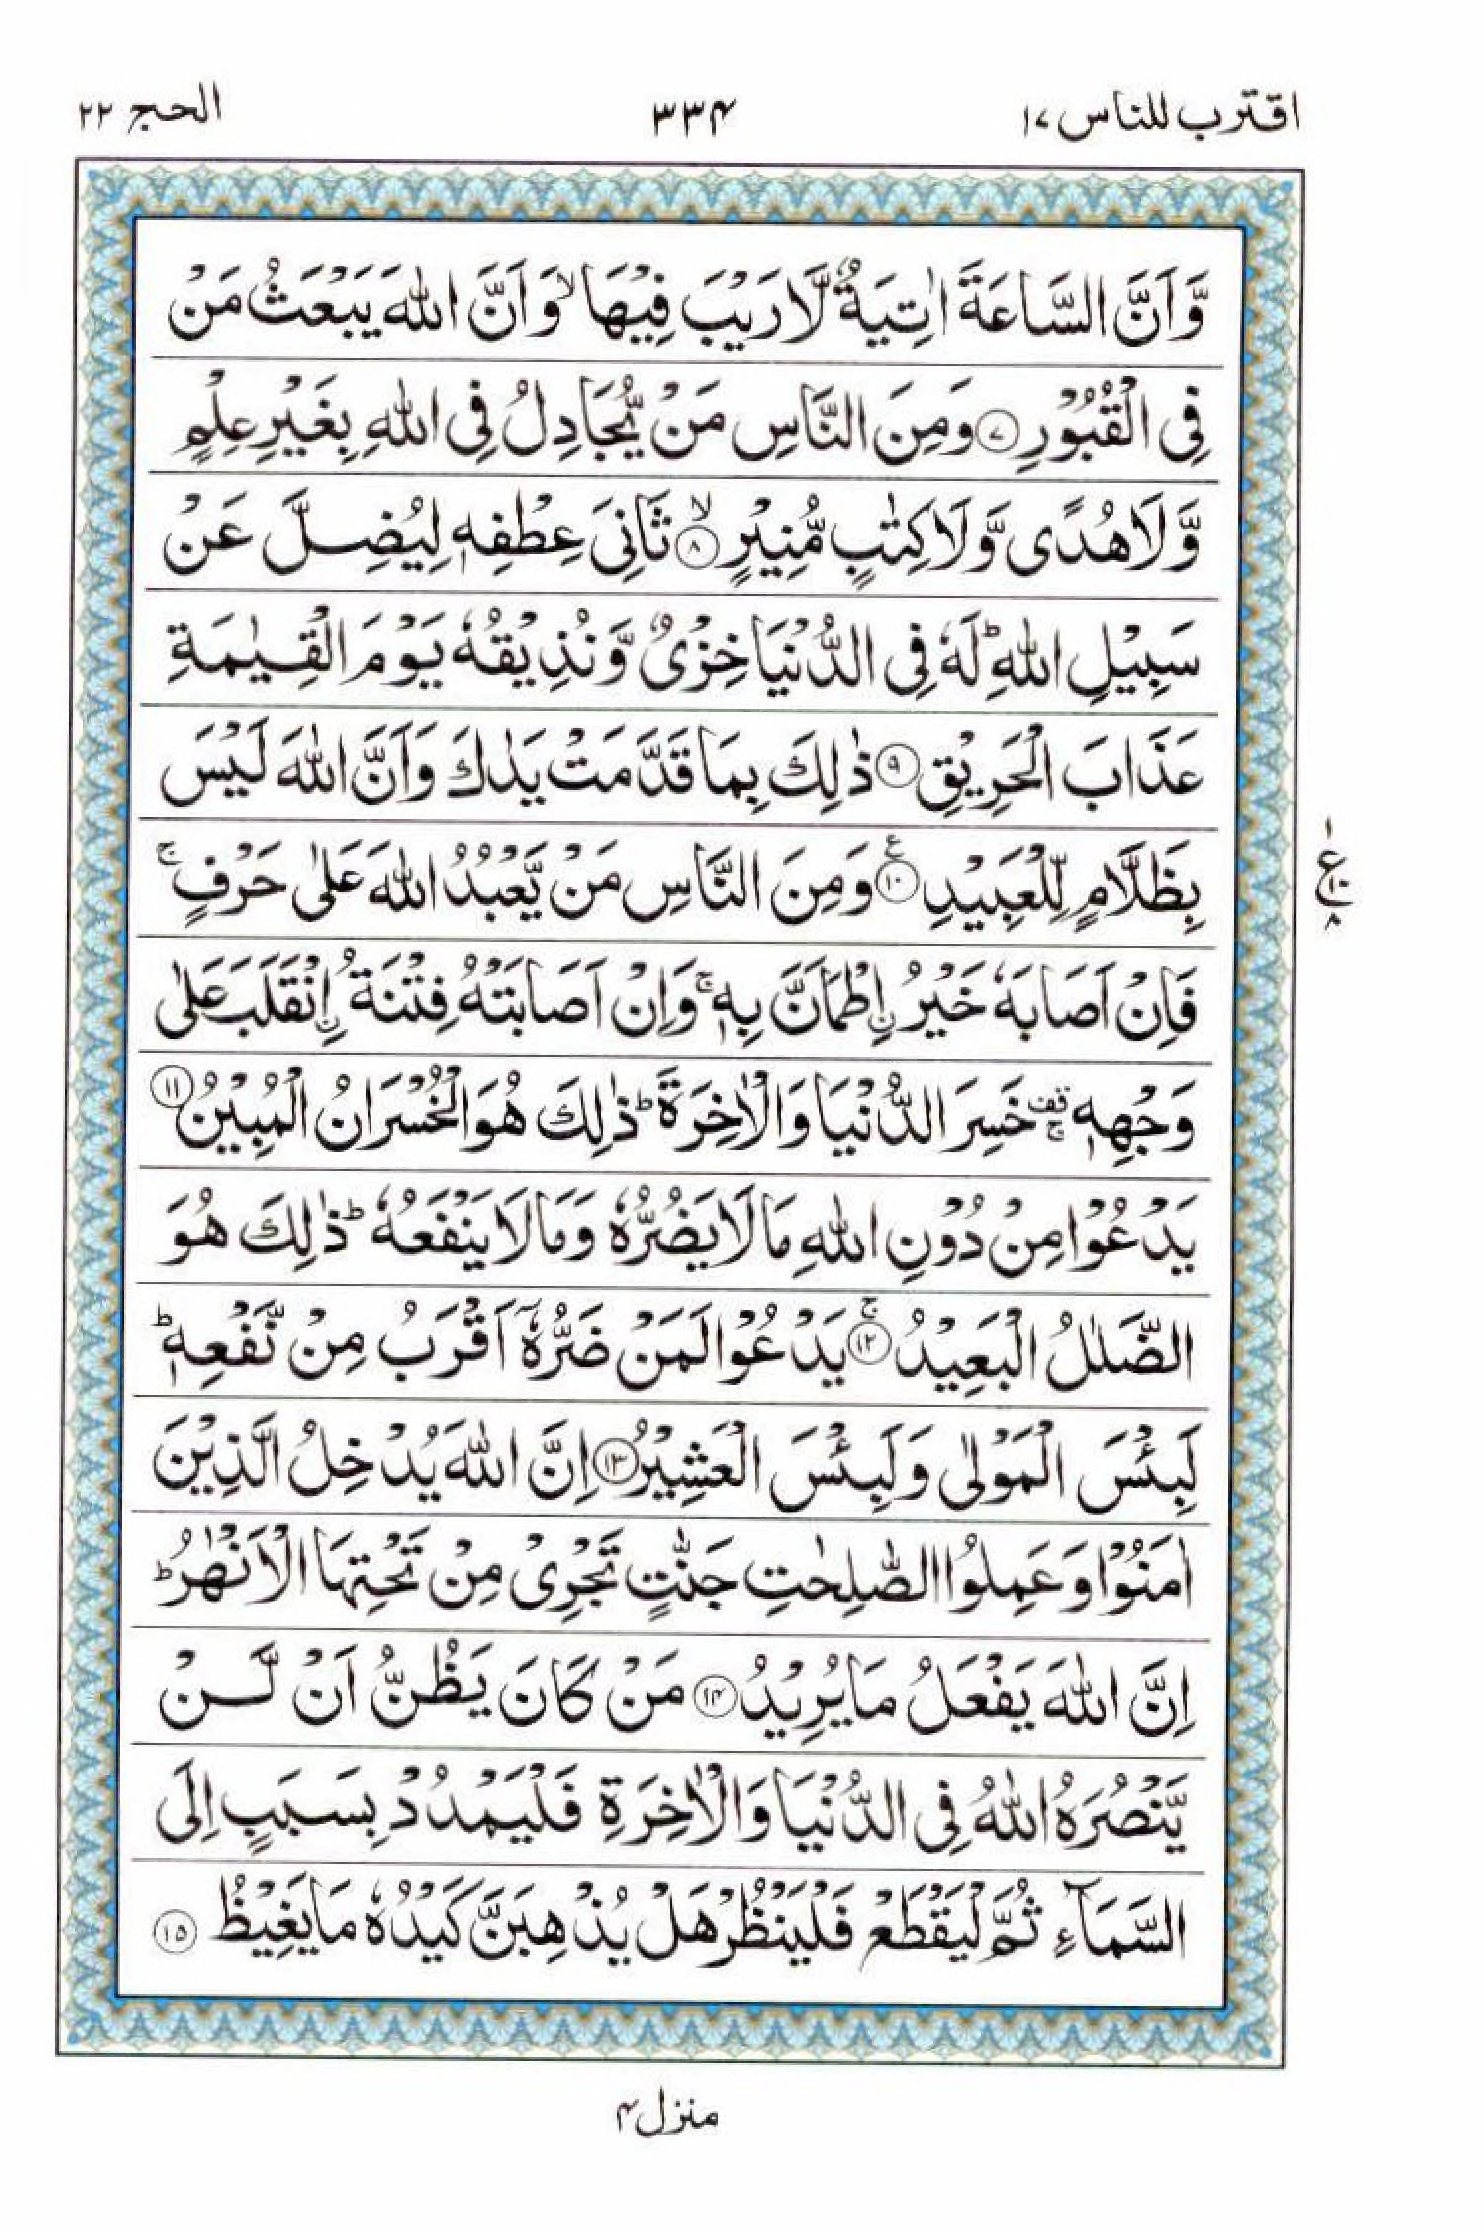 اقترب للناس ١٧
٣٣٤
الحج ٢٢
وَّاَنَّ السَّاعَةَ اٰتِيَةٌ لَّا رَيْبَ فِيْهَا ۙ وَاَنَّ اللّٰهَ يَبْعَثُ مَنْ
فِى الْقُبُوْرِ ﴿٧﴾ وَمِنَ النَّاسِ مَنْ يُّجَادِلُ فِى اللّٰهِ بِغَيْرِ عِلْمٍ
وَّلَا هُدًى وَّلَا كِتٰبٍ مُّنِيْرٍ ۙ ﴿٨﴾ ثَانِىَ عِطْفِهٖ لِيُضِلَّ عَنْ
سَبِيْلِ اللّٰهِ ؕ لَهٗ فِى الدُّنْيَا خِزْىٌ وَّنُذِيْقُهٗ يَوْمَ الْقِيٰمَةِ
عَذَابَ الْحَرِيْقِ ﴿٩﴾ ذٰلِكَ بِمَا قَدَّمَتْ يَدٰكَ وَاَنَّ اللّٰهَ لَيْسَ
بِظَلَّامٍ لِّلْعَبِيْدِ ﴿١٠﴾ ع وَمِنَ النَّاسِ مَنْ يَّعْبُدُ اللّٰهَ عَلٰى حَرْفٍ ۚ
فَاِنْ اَصَابَهٗ خَيْرُ ۨاطْمَاَنَّ بِهٖ ۚ وَاِنْ اَصَابَتْهُ فِتْنَةُ ۨانْقَلَبَ عَلٰى
وَجْهِهٖ ۚ قف خَسِرَ الدُّنْيَا وَالْاٰخِرَةَ ؕ ذٰلِكَ هُوَ الْخُسْرَانُ الْمُبِيْنُ ﴿١١﴾
يَدْعُوْا مِنْ دُوْنِ اللّٰهِ مَا لَا يَضُرُّهٗ وَمَا لَا يَنْفَعُهٗ ؕ ذٰلِكَ هُوَ
الضَّلٰلُ الْبَعِيْدُ ۚ ﴿١٢﴾ يَدْعُوْا لَمَنْ ضَرُّهٗۤ اَقْرَبُ مِنْ نَّفْعِهٖ ؕ
لَبِئْسَ الْمَوْلٰى وَلَبِئْسَ الْعَشِيْرُ ﴿١٣﴾ اِنَّ اللّٰهَ يُدْخِلُ الَّذِيْنَ
اٰمَنُوْا وَعَمِلُوا الصّٰلِحٰتِ جَنّٰتٍ تَجْرِىْ مِنْ تَحْتِهَا الْاَنْهٰرُ ؕ
اِنَّ اللّٰهَ يَفْعَلُ مَا يُرِيْدُ ﴿١٤﴾ مَنْ كَانَ يَظُنُّ اَنْ لَّنْ
يَّنْصُرَهُ اللّٰهُ فِى الدُّنْيَا وَالْاٰخِرَةِ فَلْيَمْدُدْ بِسَبَبٍ اِلَى
السَّمَآءِ ثُمَّ لْيَقْطَعْ فَلْيَنْظُرْ هَلْ يُذْهِبَنَّ كَيْدُهٗ مَا يَغِيْظُ ﴿١٥﴾
١
ع ١٠
٨
منزل ٤